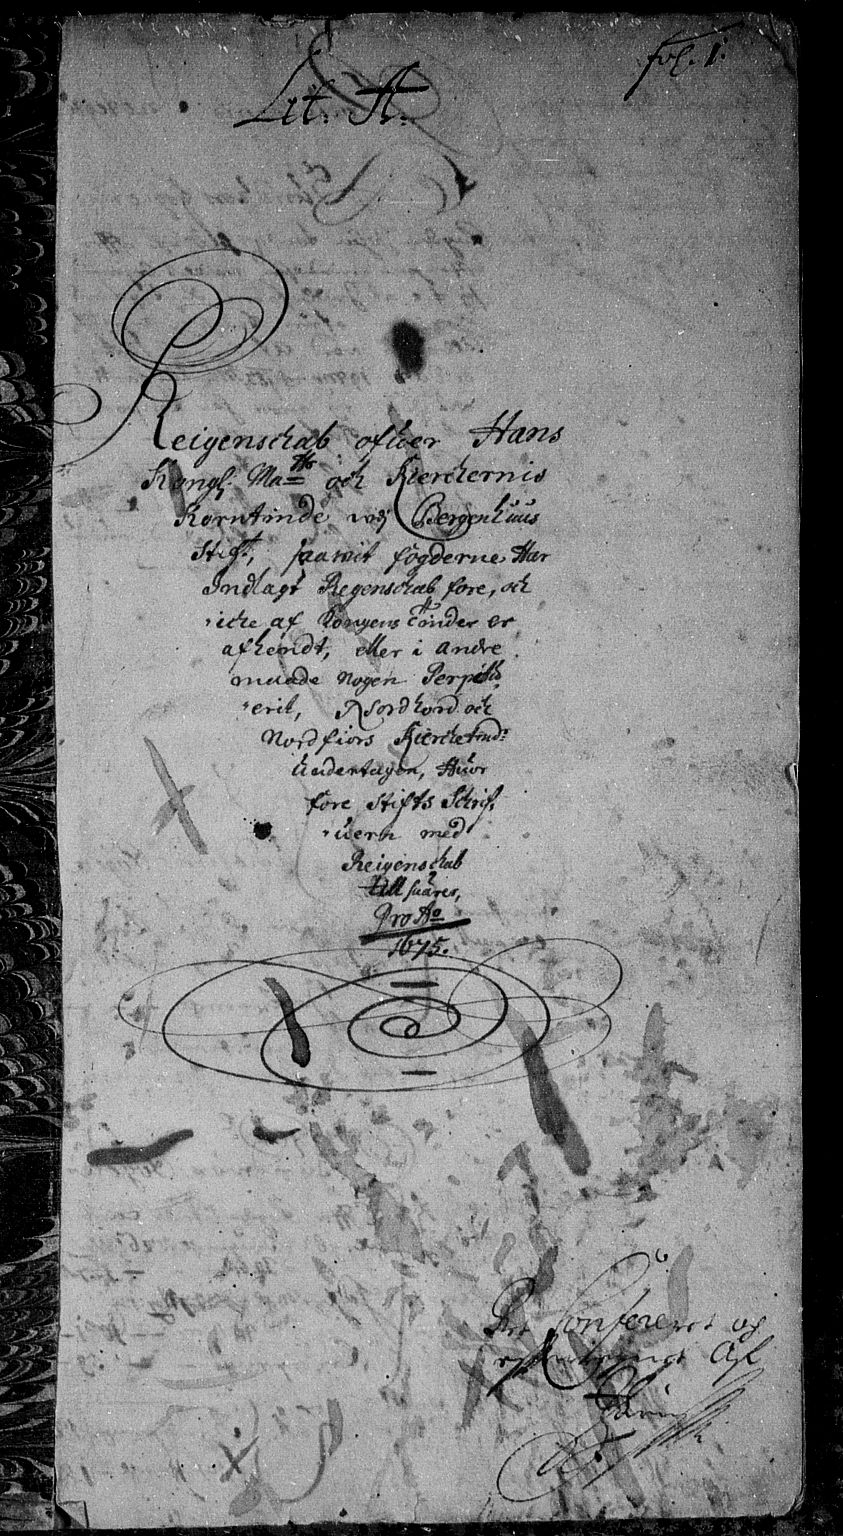 Lit: A:
fol. 1.
Reigenschab ofver Hans
Kongl. Ma:tts och Kierckernis
Korntinde ved Bergenhuus
Stift, saavit fogderne Har
Indlagt Regenschab fore, och
icke af Kongens tinder er
afhendt, eller i andre
maade nogen Perpetu,
Nordhord och
Nordfiors Kircketind:
Undertagen, Huor
fore Stifts Schrif,
uern med
Reigenschab
till suares,
Pro Ao
1675.
Confereret og
Af